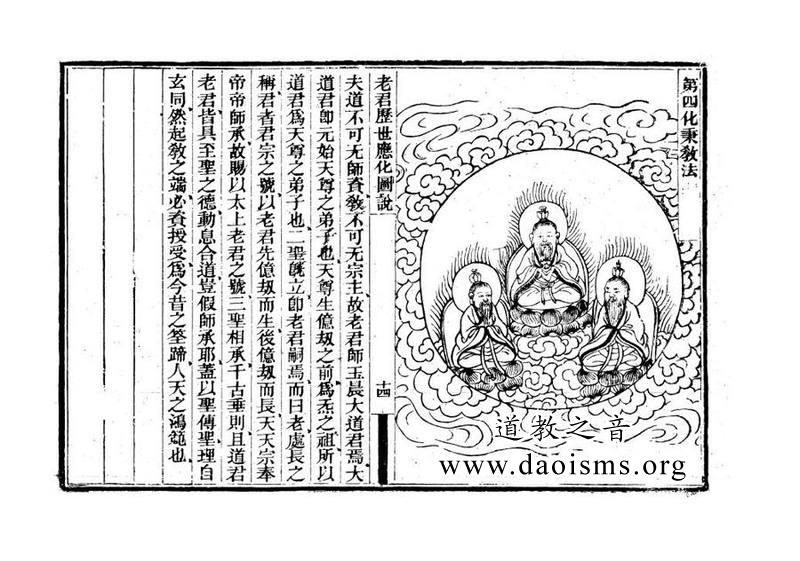 第四化秉敎法
老君歷世應化圖說
十四
夫道不可无師資敎不可无宗主故老君師玉晨大道君焉大
道君卽元始天尊之弟子也天尊生億刼之前爲炁之祖所以
道君爲天尊之弟子也二聖旣立卽老君嗣焉而曰老處長之
稱君者君宗之號以老君先億刼而生後億刼而長天天宗奉
帝帝師承故賜以太上老君之號三聖相承千古垂則且道君
老君皆具至聖之德動息合道豈假師承耶蓋以聖傳聖理自
玄同然起敎之端必資授受爲今昔之筌蹄人天之鴻範也
道教之音
www.daoisms.org